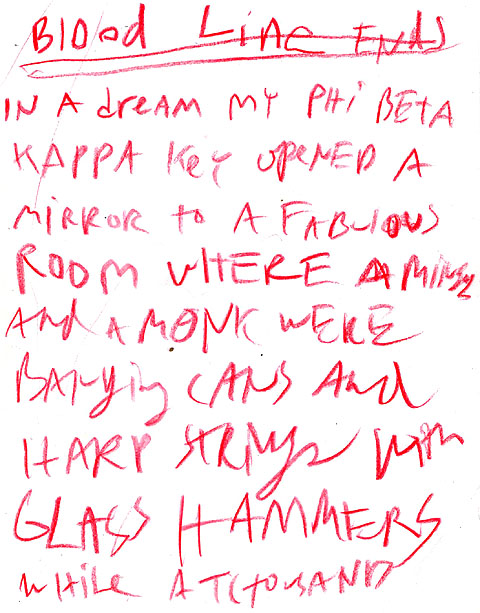 Blood Line Ends
IN A dream my PHi BETA
KAPPA Key opened A
mirror to A FABULOUS
ROOM WHERE A
And A MONK WERE
BANging CANS And
HARP STRINGS with
GLASS HAMMERS
while A THOUSAND